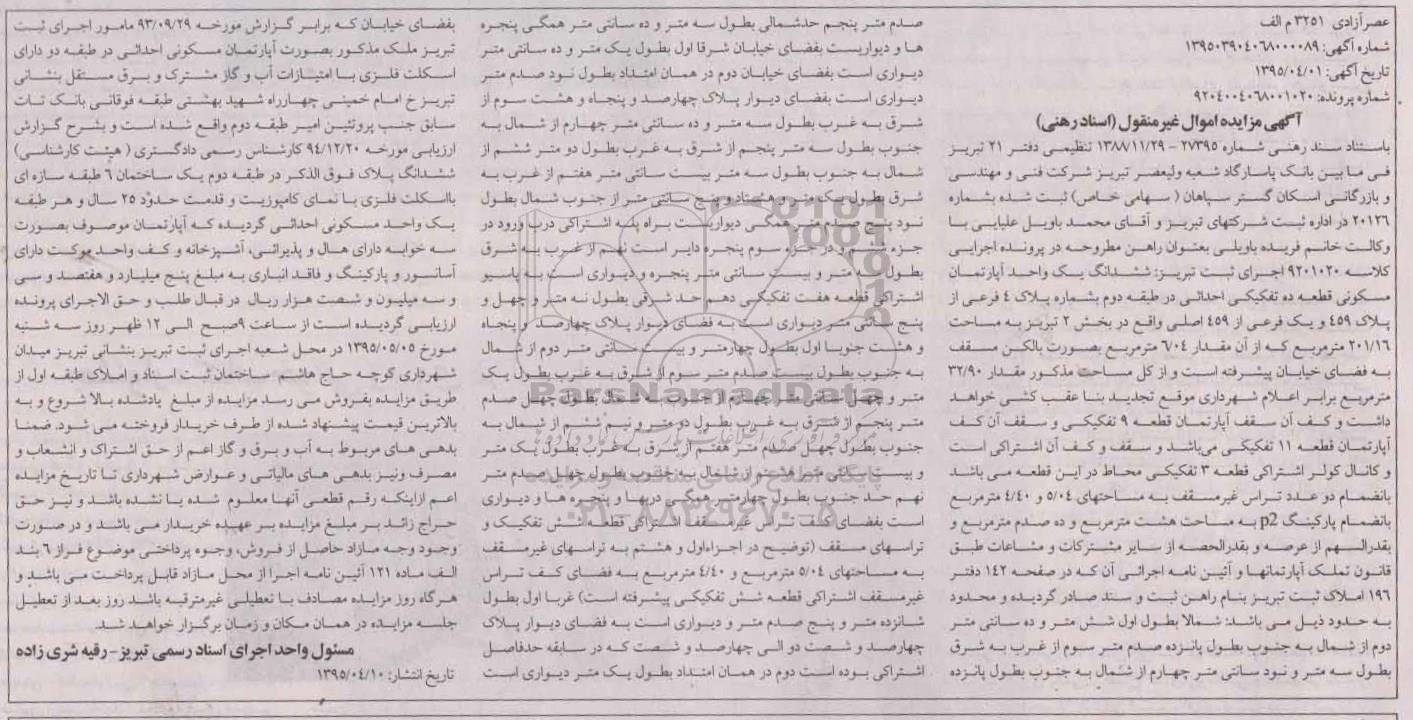 عصرآزادی ۳۲۵۱ م الف
شماره آگهی: ۱۳۹۵۰۳۹۰۴۰۶۸۰۰۰۰۸۹
تاریخ آگهی: ۱۳۹۵/۰۴/۰۱
شماره پرونده: ۹۲۰۴۰۰۴۰۶۸۰۰۱۰۲۰
آگهی مزایده اموال غیرمنقول (اسناد رهنی)
باستناد سند رهنی شماره ۲۷۳۹۵ - ۱۳۸۸/۱۱/۲۹ تنظیمی دفتر ۲۱ تبریز
فی ما بین بانک پاسارگاد شعبه ولیعصر تبریز شرکت فنی و مهندسی
و بازرگانی اسکان گستر سپاهان ( سهامی خاص) ثبت شده بشماره
۲۰۱۲۶ در اداره ثبت شرکتهای تبریز و آقای محمد باویل علیایی با
وکالت خانم فریده باویلی بعنوان راهن مطروحه در پرونده اجرایی
کلاسه ۹۲۰۱۰۲۰ اجرای ثبت تبریز: ششدانگ یک واحد آپارتمان
مسکونی قطعه ده تفکیکی احداثی در طبقه دوم بشماره پلاک ۴ فرعی از
پلاک ۴۵۹ و یک فرعی از ۴۵۹ اصلی واقع در بخش ۲ تبریز به مساحت
۲۰۱/۱۶ مترمربع که از آن مقدار ۶/۰۴ مترمربع بصورت بالکن مسقف
به فضای خیابان پیشرفته است و از کل مساحت مذکور مقدار ۳۲/۹۰
مترمربع برابر اعلام شهرداری موقع تجدید بنا عقب کشی خواهد
داشت و کف آن سقف آپارتمان قطعه ۹ تفکیکی و سقف آن کف
آپارتمان قطعه ۱۱ تفکیکی می‌باشد و سقف و کف آن اشتراکی است
و کانال کولر اشتراکی قطعه ۳ تفکیکی محاط در این قطعه می باشد
بانضمام دو عدد تراس غیرمسقف به مساحتهای ۵/۰۴ و ۴/۴۰ مترمربع
بانضمام پارکینگ p2 به مساحت هشت مترمربع و ده صدم مترمربع و
بقدرالسهم از عرصه و بقدرالحصه از سایر مشترکات و مشاعات طبق
قانون تملک آپارتمانها و آئین نامه اجرائی آن که در صفحه ۱۴۲ دفتر
۱۹۶ املاک ثبت تبریز بنام راهن ثبت و سند صادر گردیده و محدود
به حدود ذیل می باشد: شمالا بطول اول شش متر و ده سانتی متر
دوم از شمال به جنوب بطول پانزده صدم متر سوم از غرب به شرق
بطول سه متر و نود سانتی متر چهارم از شمال به جنوب بطول پانزده
صدم متر پنجم حدشمالی بطول سه متر و ده سانتی متر همگی پنجره
ها و دیواریست بفضای خیابان شرقا اول بطول یک متر و ده سانتی متر
دیواری است بفضای خیابان دوم در همان امتداد بطول نود صدم متر
دیواری است بفضای دیوار پلاک چهارصد و پنجاه و هشت سوم از
شرق به غرب بطول سه متر و ده سانتی متر چهارم از شمال به
جنوب بطول سه متر پنجم از شرق به غرب بطول دو متر ششم از
شمال به جنوب بطول سه متر بیست سانتی متر هفتم از غرب به
شرق بطول یک متر و هشتاد و پنج سانتی متر از جنوب شمال بطول
نود پنج همگی دیواریست براه پله اشتراکی درب ورود در
جزء و در جزء سوم پنجره دایر است نهم از غرب به شرق
بطول سه متر و بیست سانتی متر پنجره و دیواری است به پاسیو
اشتراکی قطعه هفت تفکیکی دهم حد شرقی بطول نه متر و چهل و
پنج سانتی متر دیواری است به فضای دیوار پلاک چهارصد و پنجاه
و هشت جنوبا اول بطول چهارمتر و بیست سانتی متر دوم از شمال
به جنوب بطول بیست صدم متر سوم از شرق به غرب بطول یک
متر و چهل سانتی متر چهارم از جنوب به شمال بطول چهل صدم
متر پنجم از شرق به غرب بطول دو متر و نیم ششم از شمال به
جنوب بطول چهل صدم متر هفتم از شرق به غرب بطول یک متر
و بیست سانتی متر هشتم از شمال به جنوب بطول چهل صدم متر
نهم حد جنوب بطول چهارمتر همگی دربها و پنجره ها و دیواری
است بفضای کف تراس غیرمسقف اشتراکی قطعه شش تفکیک و
تراسهای مسقف (توضیح در اجزاءاول و هشتم به تراسهای غیرمسقف
به مساحتهای ۵/۰۴ مترمربع و ۴/۴۰ مترمربع به فضای کف تراس
غیرمسقف اشتراکی قطعه شش تفکیکی پیشرفته است) غربا اول بطول
شانزده متر و پنج صدم متر و دیواری است به فضای دیوار پلاک
چهارصد و شصت دو الی چهارصد و شصت که در سابقه حدفاصل
اشتراکی بوده است دوم در همان امتداد بطول یک متر دیواری است
بفضای خیابان که برابر گزارش مورخه ۹۳/۰۹/۲۹ مامور اجرای ثبت
تبریز ملک مذکور بصورت آپارتمان مسکونی احداثی در طبقه دو دارای
اسکلت فلزی با امتیازات آب و گاز مشترک و برق مستقل بنشانی
تبریز خ امام خمینی چهارراه شهید بهشتی طبقه فوقانی بانک تات
سابق جنب پروتئین امیر طبقه دوم واقع شده است و بشرح گزارش
ارزیابی مورخه ۹۴/۱۲/۲۰ کارشناس رسمی دادگستری ( هیئت کارشناسی)
ششدانگ پلاک فوق الذکر در طبقه دوم یک ساختمان ۶ طبقه سازه ای
بااسکلت فلزی با نمای کامپوزیت و قدمت حدود ۲۵ سال و هر طبقه
یک واحد مسکونی احداثی گردیده که آپارتمان موصوف بصورت
سه خوابه دارای هال و پذیرائی، آشپزخانه و کف واحد موکت دارای
آسانسور و پارکینگ و فاقد انباری به مبلغ پنج میلیارد و هفتصد و سی
و سه میلیون و شصت هزار ریال در قبال طلب و حق الاجرای پرونده
ارزیابی گردیده است از ساعت ۹صبح الی ۱۲ ظهر روز سه شنبه
مورخ ۱۳۹۵/۰۵/۰۵ در محل شعبه اجرای ثبت تبریز بنشانی تبریز میدان
شهرداری کوچه حاج هاشم ساختمان ثبت اسناد و املاک طبقه اول از
طریق مزایده بفروش می رسد مزایده از مبلغ یادشده بالا شروع و به
بالاترین قیمت پیشنهاد شده از طرف خریدار فروخته می شود. ضمنا
بدهی های مربوط به آب و برق و گاز اعم از حق اشتراک و انشعاب و
مصرف ونیز بدهی های مالیاتی و عوارض شهرداری تا تاریخ مزایده
اعم ازاینکه رقم قطعی آنها معلوم شده یا نشده باشد و نیز حق
حراج زائد بر مبلغ مزایده بر عهده خریدار می باشد و در صورت
وجود وجه مازاد حاصل از فروش، وجوه پرداختی موضوع فراز ۶ بند
الف ماده ۱۲۱ آئین نامه اجرا از محل مازاد قابل پرداخت می باشد و
هرگاه روز مزایده مصادف با تعطیلی غیرمترقبه باشد روز بعد از تعطیل
جلسه مزایده در همان مکان و زمان برگزار خواهد شد.
مسئول واحد اجرای اسناد رسمی تبریز- رقیه شری زاده
تاریخ انتشار: ۱۳۹۵/۰۴/۱۰
ParsNamadData
پایگاه اطلاع رسانی مناقصه و مزایده
۰۲۱-۸۸۳۴۹۶۷۰-۵